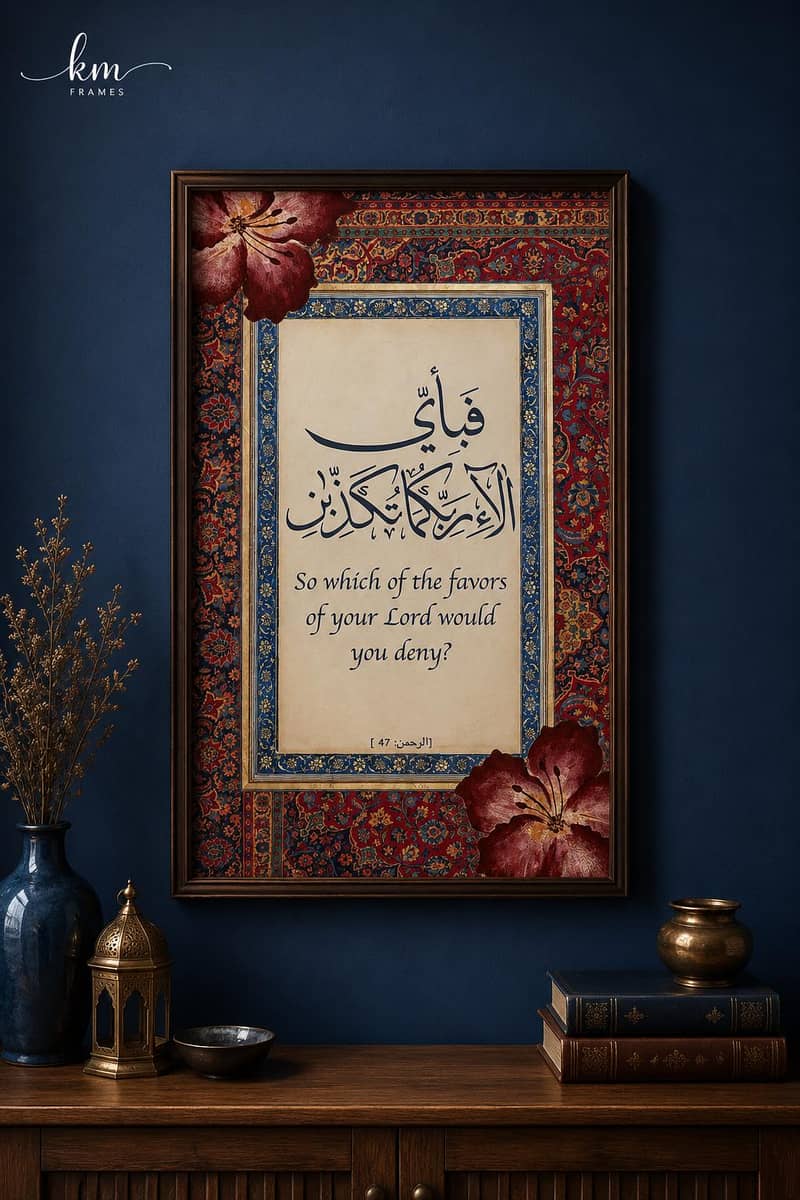 km
FRAMES
فَبِأَيِّ
الَآءِ رَبِّكُمَا تُكَذِّبٰنِ
So which of the favors
of your Lord would
you deny?
[الرحمن: 47 ]